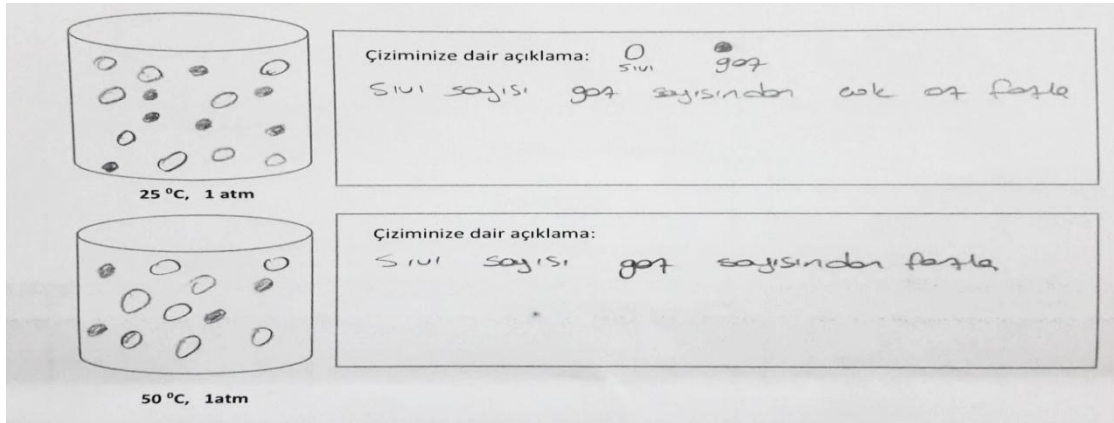 Çiziminize dair açıklama:
sıvı gaz
Sıvı sayısı gaz sayısından çok az fazla
25 ⁰C, 1 atm
Çiziminize dair açıklama:
Sıvı sayısı gaz sayısından fazla
50 ⁰C, 1atm